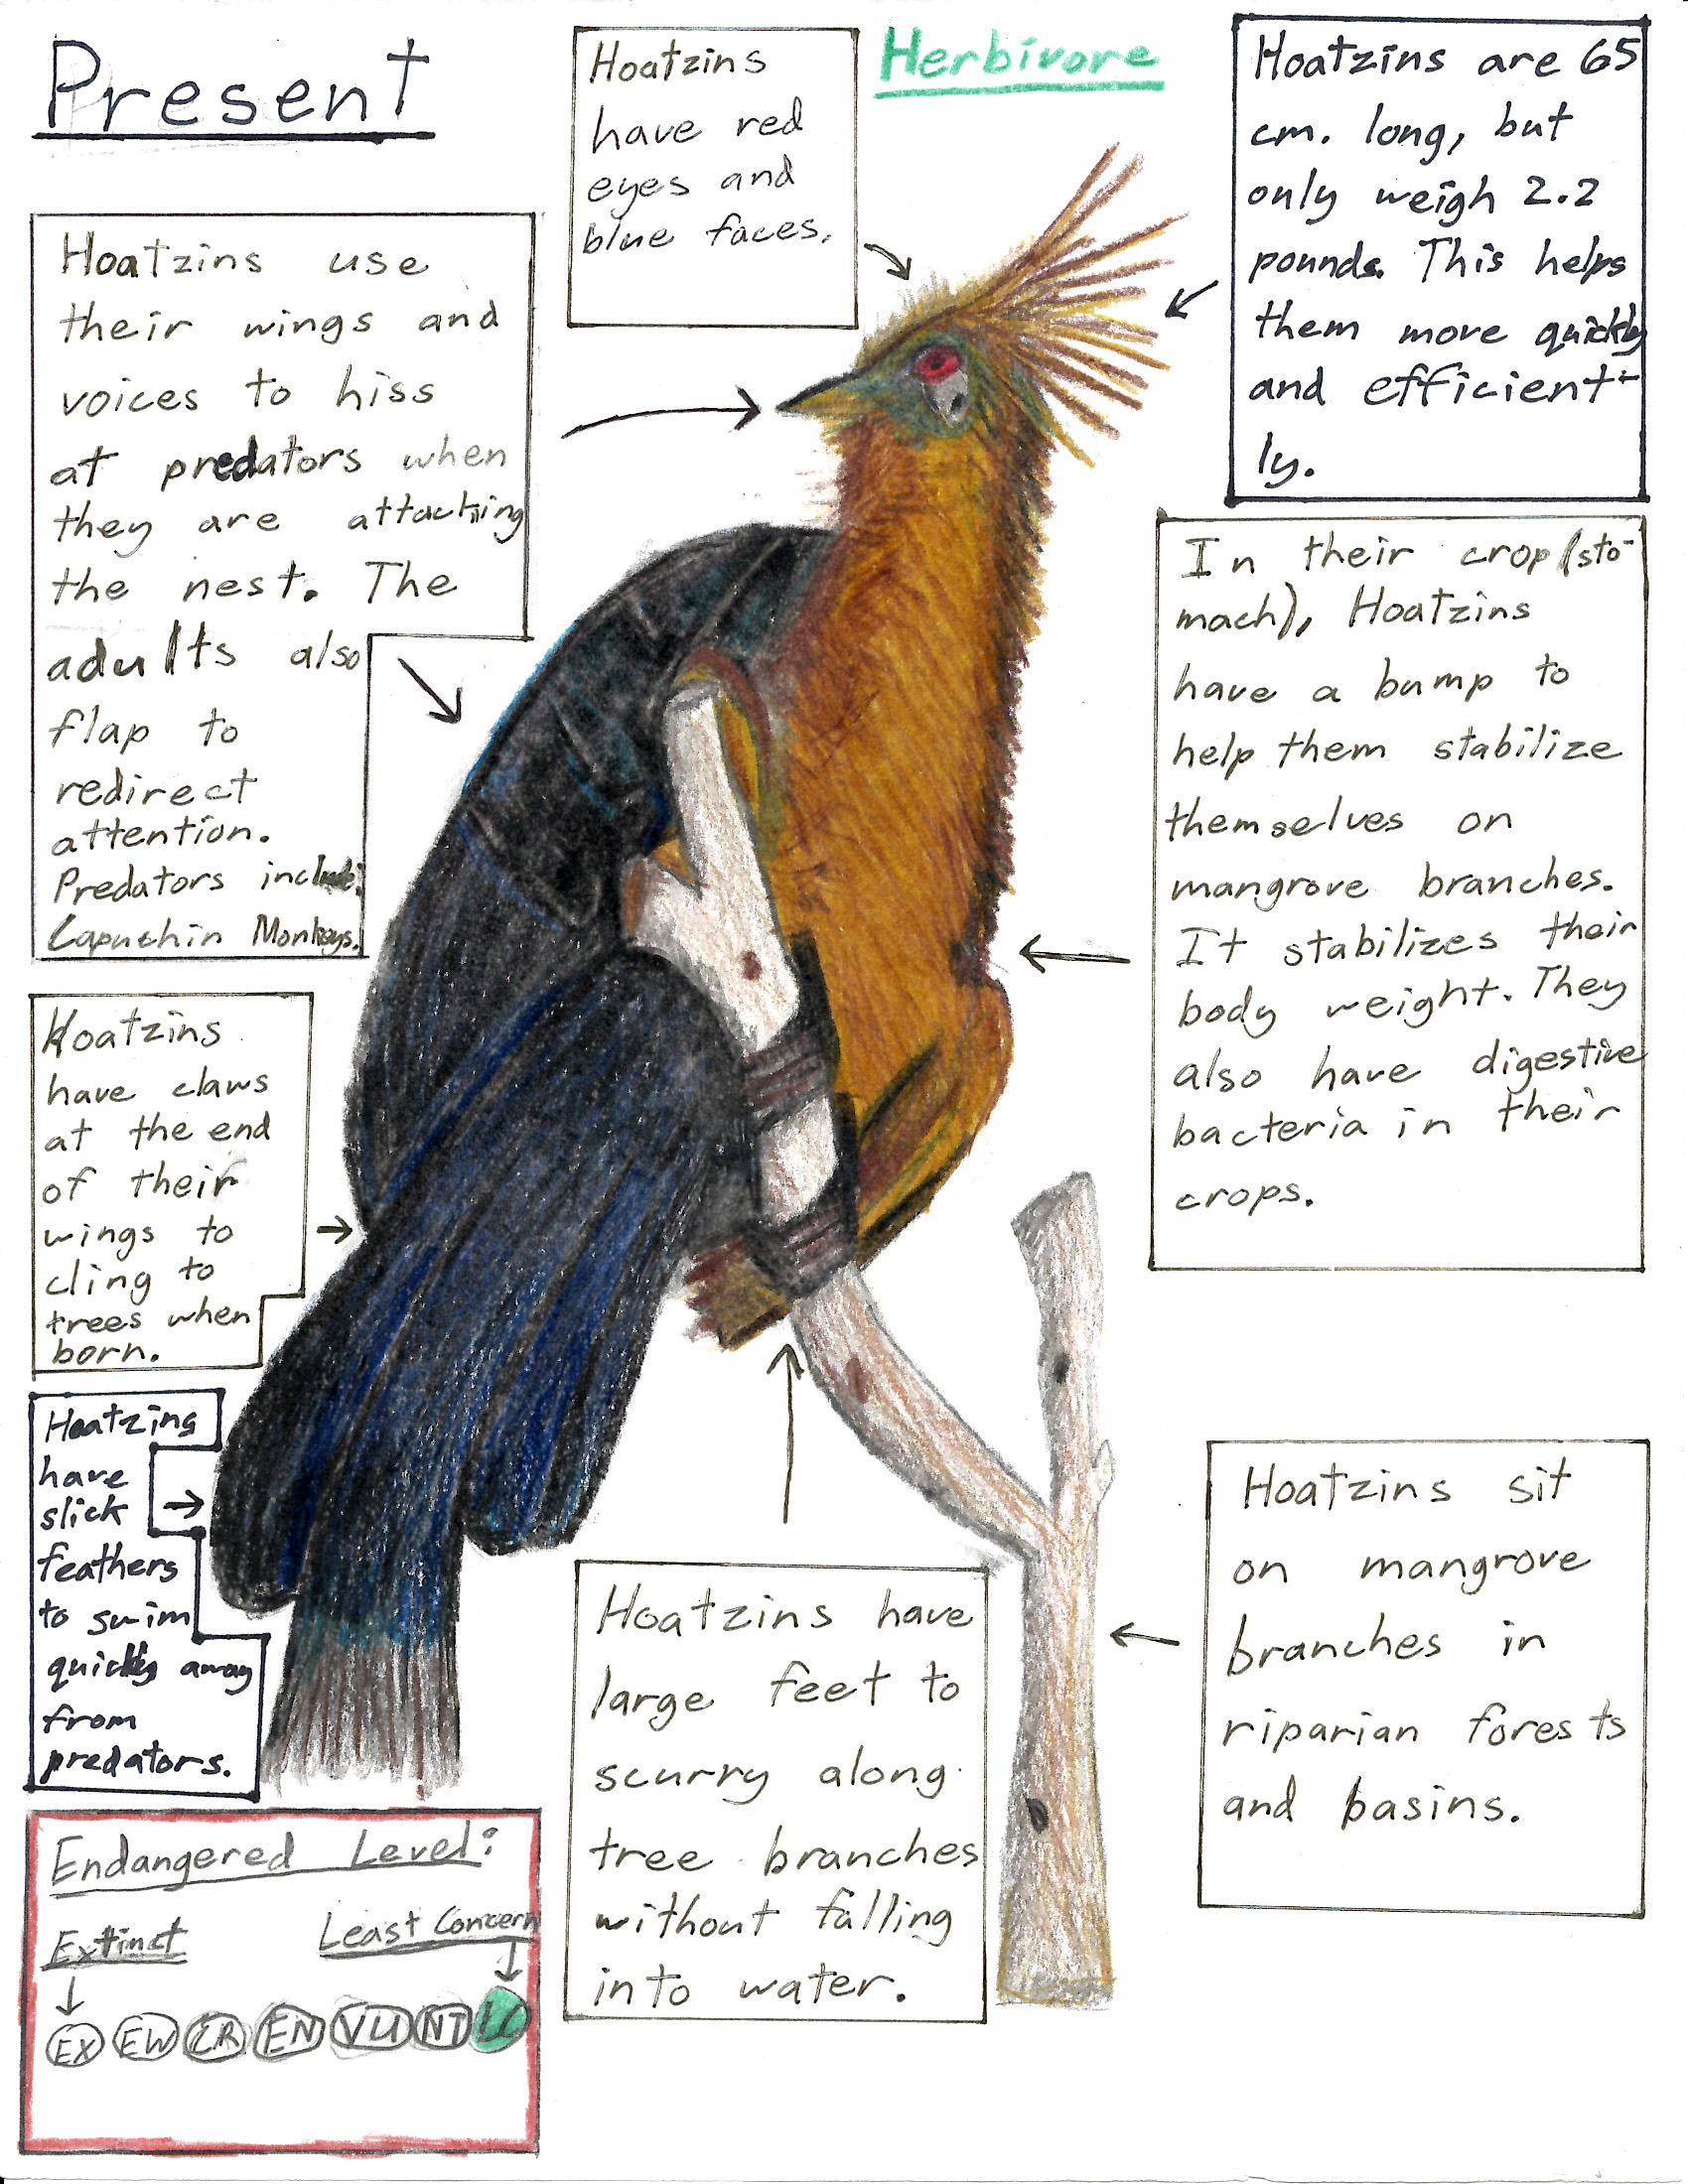 Present
Hoatzins
have red
eyes and
blue faces.
Herbivore
Hoatzins are 65
cm. long, but
only weigh 2.2
pounds. This helps
them more quickly
and efficient-
ly.
Hoatzins use
their wings and
voices to hiss
at predators when
they are attacking
the nest. The
adults also
flap to
redirect
attention.
Predators include:
Capuchin Monkeys.
In their crop (sto-
mach), Hoatzins
have a bump to
help them stabilize
themselves on
mangrove branches.
It stabilizes their
body weight. They
also have digestive
bacteria in their
crops.
Hoatzins
have claws
at the end
of their
wings to
cling to
trees when
born.
Hoatzins
have
slick
feathers
to swim
quickly away
from
predators.
Hoatzins have
large feet to
scurry along
tree branches
without falling
into water.
Hoatzins sit
on mangrove
branches in
riparian forests
and basins.
Endangered Level:
Extinct Least Concern
EX EW CR EN VU NT LC